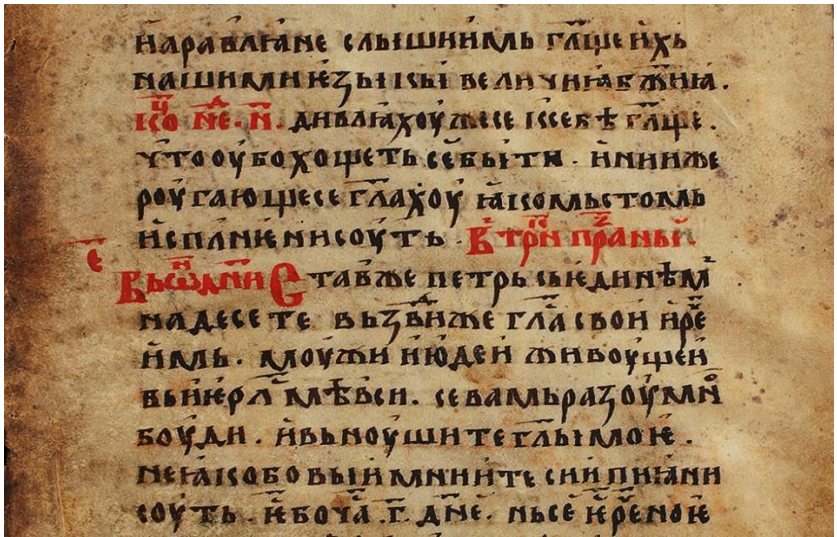 и҆аравлꙗне слышимь гл҃щеихь
нашими ѥзыкы величиꙗ бж҃иꙗ .
кⷰ҇о нⷣе. н҃. дивлꙗхоу жесе к себѣ гл҃ще .
что оубо хощеть се быти . и҆ни же
роугающесе гл҃ахоу ꙗко мьстомь
и҆спл҃нѥни соуть .
въ ѡ҆ни Ставже петрь сь ѥдинѣмⷶ
на десете възⷣвиже гл҃а свои и҆рⷱ҇е
и҆мь . моужи июдеи живоущеи
вь и҆ѥрⷭ҇лмѣ вси . се вамь разоумⷩ҇о
боуди . и҆ вьноушите гл҃ы моѥ .
не ꙗко бо вы и҆ мните сии пиꙗни
соуть . и҆бо чⷭ҇а .г҃. дн҃е . нь се ѥ҆рⷱ҇еноѥ